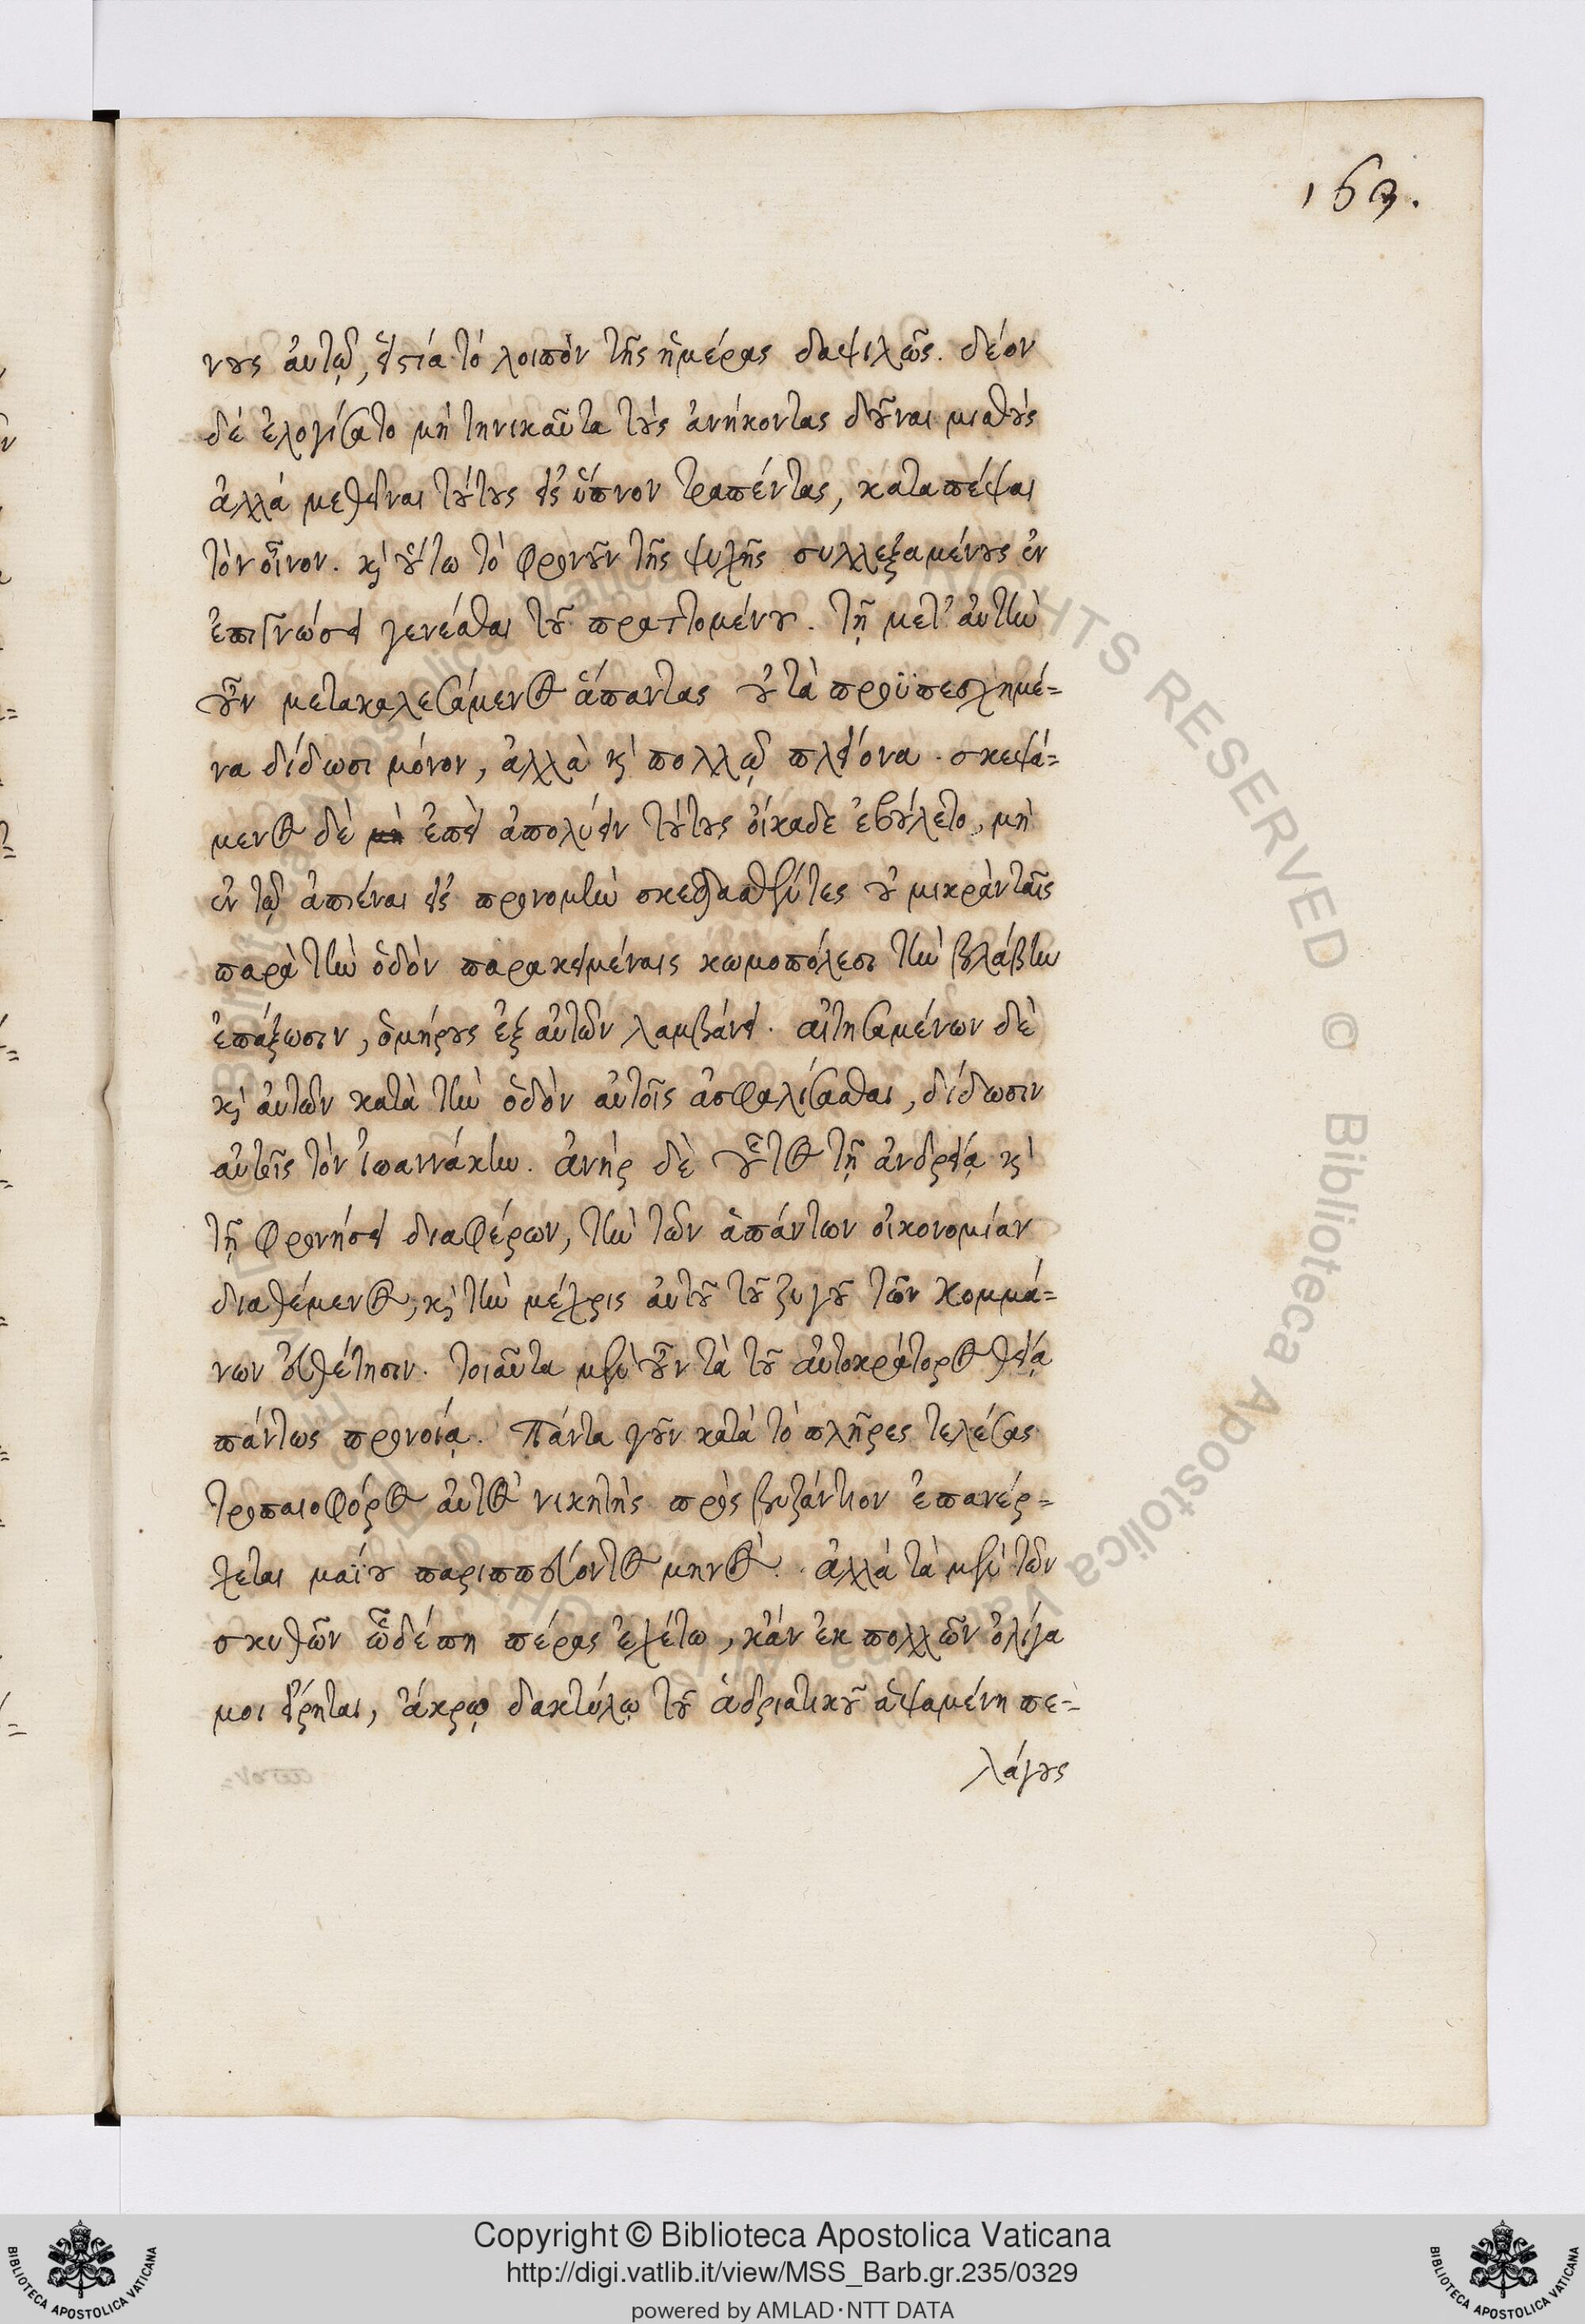 163.
νους αὐτῷ, εἱστία τὸ λοιπὸν τῆς ἡμέρας δαψιλῶς. δέον
δὲ ἐλογίσατο μὴ τηνικαῦτα τοὺς ἀνήκοντας δοῦναι μισθοὺς
ἀλλὰ μεθεῖναι τούτους εἰς ὕπνον τραπέντας, καταπέψαι
τὸν οἶνον. καὶ οὕτω τὸ φρονοῦν τῆς ψυχῆς συλλεξαμένους ἐν
ἐπιγνώσει γενέσθαι τοῦ πραττομένου. τῇ μετ' αὐτὴν
οὖν μετακαλεσάμενος ἅπαντας οὐ τὰ προϋπεσχημέ=
να δίδωσι μόνον, ἀλλὰ καὶ πολλῷ πλείονα. σκεψά=
μενος δὲ μὴ ἐπεὶ ἀπολύειν τούτους οἴκαδε ἐβούλετο, μὴ
ἐν τῷ ἀπιέναι εἰς προνομὴν σκεδασθέντες οὐ μικρὰν ταῖς
παρὰ τὴν ὁδὸν παρακειμέναις κωμοπόλεσι τὴν βλάβην
ἐπάξωσιν, ὁμήρους ἐξ αὐτῶν λαμβάνει. αἰτησαμένων δὲ
καὶ αὐτῶν κατὰ τὴν ὁδὸν αὐτοῖς ἀσφαλίσασθαι, δίδωσιν
αὐτοῖς τὸν ἰωαννάκην. ἀνὴρ δὲ οὗτος τῇ ἀνδρείᾳ καὶ
τῇ φρονήσει διαφέρων, τὴν τῶν ἁπάντων οἰκονομίαν
διαθέμενος, καὶ τὴν μέχρις αὐτοῦ τοῦ ζυγοῦ τῶν κομμά=
νων διαθέτησιν. τοιαῦτα μὲν οὖν τὰ τοῦ αὐτοκράτορος θείᾳ
πάντως προνοίᾳ. Πάντα γοῦν κατὰ τὸ πλῆρες τελέσας
τροπαιοφόρος αὐτὸς νικητὴς πρὸς βυζάντιον ἐπανέρ=
χεται μαΐου παριππεύοντος μηνὸς. ἀλλὰ τὰ μὲν τῶν
σκυθῶν ὧδέ πη πέρας ἐχέτω, κἂν ἐκ πολλῶν ὀλίγα
μοι εἴρηται, ἄκρῳ δακτύλῳ τοῦ ἀδριατικοῦ ἁψαμένη πε=
λάγους
Copyright © Biblioteca Apostolica Vaticana
http://digi.vatlib.it/view/MSS_Barb.gr.235/0329
powered by AMLAD·NTT DATA